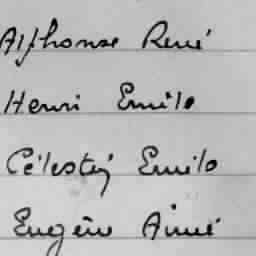 Alphonse René
Henri Emile
Célestin Emile
Eugène Aimé